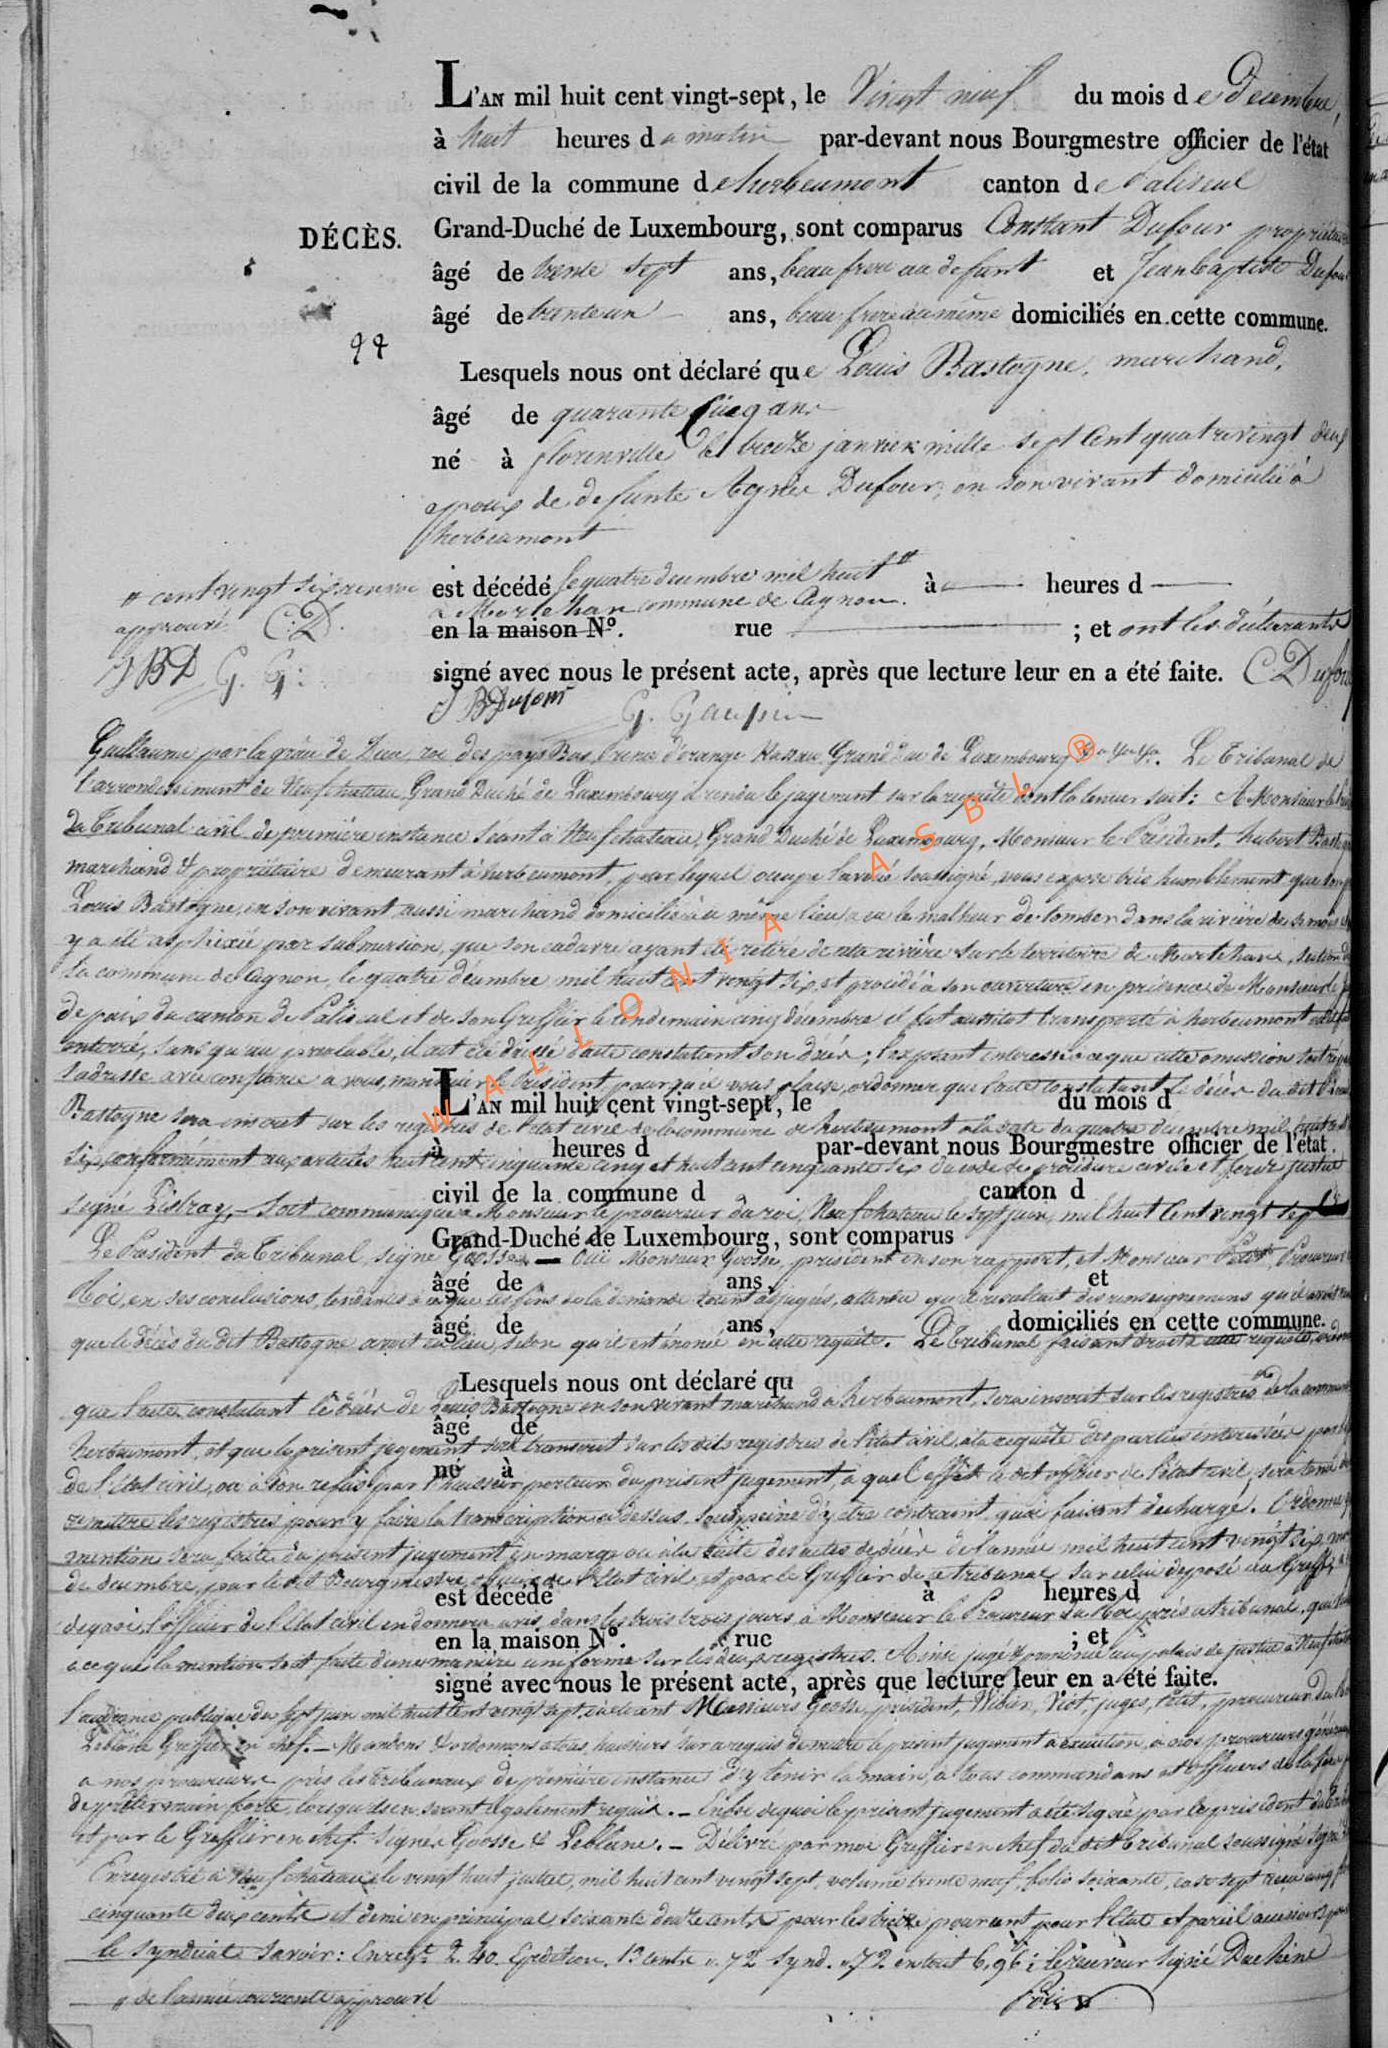 L'AN mil huit cent vingt-sept, le Vingt neuf du mois de Decembre,
à huit heures d u matin par-devant nous Bourgmestre officier de l'état
civil de la commune d'herbeumont canton de Paliseul
DÉCÈS.
Grand-Duché de Luxembourg, sont comparus Constant Dufour proprietaire
âgé de trente sept ans, beau frere au defunt et Jean baptiste Dufour
âgé de trente un ans, beau frere du même domiciliés en cette commune.
Lesquels nous ont déclaré que Louis Bastogne, marchand,
âgé de quarante Cinq ans
né à florenville le treize janvier mille sept Cent quatre vingt deux
epoux de defunte Agnès Dufour, en son vivant domicilié à
herbeumont
est décédé le quatre decembre mil huit " à heures d
a Mortehan commune de Cugnon.
en la maison N°. rue ; et ont les déclarants
signé avec nous le présent acte, après que lecture leur en a été faite. C Dufour
" cent vingt six renvoi
approuvé C.D.
JBD G. G:
J B Dufour G. Gaupin
Guillaume par la grâce de Dieu, roi des pays Bas, prince d'orange Nassau Grand Duc de Luxembourg Le Tribunal de
l'arrondissement de Neufchateau, Grand Duché de Luxembourg a rendu le jugement sur la requête dont la teneur suit: A Monsieur le
du Tribunal civil de première instance séant à Neufchateau, Grand Duché de Luxembourg, Monsieur le Président, hubert
marchand & propriétaire demeurant à herbeumont, pour lequel occupe l'avoué soussigné, vous expose très humblement que son
Louis Bastogne, en son vivant aussi marchand domicilié au même lieu, a eu le malheur de tomber dans la rivière de semois
y a été asphixié par submersion, que son cadavre ayant été retiré de cette rivière sur le territoire de Mortehan, section de
la commune de Cugnon, le quatre décembre mil huit cent vingt six, et procédé à son ouverture en présence de Monsieur le
de paix du canton de Paliseul et de son Greffier le lendemain cinq décembre il fut aussitot transporté à herbeumont
enterré, sans qu'au préalable, il ait été dressé d'acte constatant son décès; l'exposant interessé a ce que cette omission soit
s'adresse avec confiance à vous, monsieur le Président, pour qu'il vous plaise, ordonner que l'acte constatant le décès du dit
L'AN mil huit cent vingt-sept, le du mois d
Bastogne sera inscrit sur les registres de l'état civil de la commune de herbeumont à la date du quatre decembre mil huit
à heures d par-devant nous Bourgmestre officier de l'état
six, conformément aux articles huit cent cinquante cinq et huit cent cinquante six du code de procédure civile et ferez justice
civil de la commune d canton d
signé Soit communiqué à Monsieur le procureur du roi, Neufchateau le sept juin, mil huit Cent vingt sept
Grand-Duché de Luxembourg, sont comparus
Le President du Tribunal, signé Goosse, Ouï Monsieur Goosse, président en son rapport, et Monsieur Procureur
âgé de ans, et
Roi, en ses conclusions, tendantes à ce que les fins de la demande soient adjugés, attendu qu'il resultait des renseignemens qu'il
âgé de ans, domiciliés en cette commune.
que le décès du dit Bastogne avait eu lieu, selon qu'il est énoncé en cette requête. Le Tribunal faisant droit requête,
Lesquels nous ont déclaré qu
que l'acte constatant le décès de Louis Bastogne en son vivant marchand a herbeumont, sera inscrit sur les registres de la commune
âgé de
herbeumont, et que le présent jugement sera transcrit sur les dits registres de l'état civil, à la requête des parties interessées
né à
de l'état civil, ou à son refus par l'huissier porteur du présent jugement, a quel effet le dit officier de l'état civil, sera tenu de
remettre les registres pour y faire la transcription ci dessus, sous peine d'y etre contraint, quoi faisant dechargé. Ordonne
mention sera faite du présent jugement en marge ou à la suite des actes de décès de l'année mil huit cent vingt six,
de decembre, par le dit Bourgmestre, officier de l'état civil et par le Greffier de ce tribunal sur celui déposé au Greffe,
est décédé à heures d
l'officier de l'état civil en donnera avis, dans les trois trois jours à Monsieur le Procureur du Roi près ce tribunal,
en la maison N°. rue ; et
a ce que la mention soit faite d'une manière uniforme sur les deux registres. Ainsi jugé & prononcé au palais de justice à
signé avec nous le présent acte, après que lecture leur en a été faite.
l'audience publique du sept juin mil huit cent vingt sept, Messieurs Goosse, président, juges, procureur du
Leblanc Greffier en chef. Mandons & ordonnons a tous huissiers sur ce requis de mettre le présent jugement a exécution, à nos procureurs généraux
a nos procureurs près les tribunaux de première instance d'y tenir la main, a tous commandans et officiers de la
de prêter main forte, lorsqu'ils en seront légalement requis. En foi de quoi le présent jugement a été signé par le président du
et par le Greffier en chef. Signés Goosse & Leblanc. Délivré par moi Greffier en chef du dit tribunal soussigné signé
Enregistré à Neufchâteau le vingt huit juillet, mil huit cent vingt sept, volume trente neuf, folio soixante, case sept
cinquante deux cents et demi en principal, soixante douze cents pour les treize pour cent pour l'Etat et pareil
le syndicat savoir: Enregt 2.40 Expédition, 13 cents .. 72 Synd. .72 en tout 6,96 : le receveur signé Duchêne
" de l'année courante approuvé
WALLONIA ASBL ®